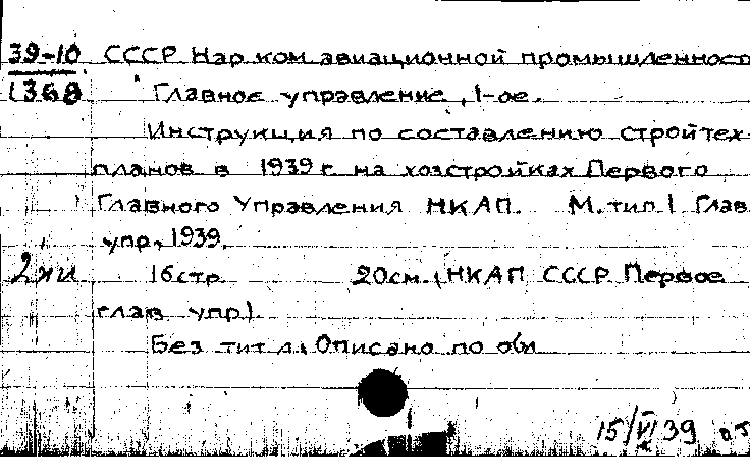 39-10 СССР Нар.ком авиационной промышленност
1368 Главное управление, 1-ое.
Инструкция по составлению стройтех-
планов в 1939 г. на хозстройках Первого
Главного Управления НКАП. М. тип. 1 Глав
упр., 1939.
16 стр. 20 см. (НКАП СССР Первое
глав упр).
Без тит л. Описано по обл
15/VI 39